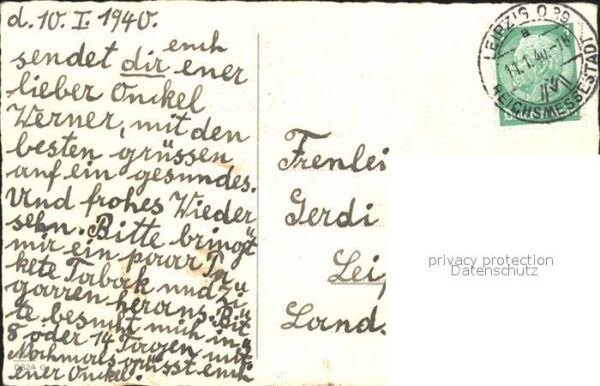 d. 10. I. 1940.
euch
sendet dir euer
lieber Onckel
Werner, mit den
besten grüssen
auf ein gesundes.
Und frohes Wieder
sehn. Bitte bringt
mir ein paar Pa„
kete Tabak und zi„
garren heraus. Bit
te besucht mich in
8 oder 14 Tagen mit
Nochmals grüsst euch
euer Onkel.
Frenlei
Gerdi
Leip
Lands
LEIPZIG O 29
a
11.1.40
REICHSMESSESTADT
privacy protection
Datenschutz